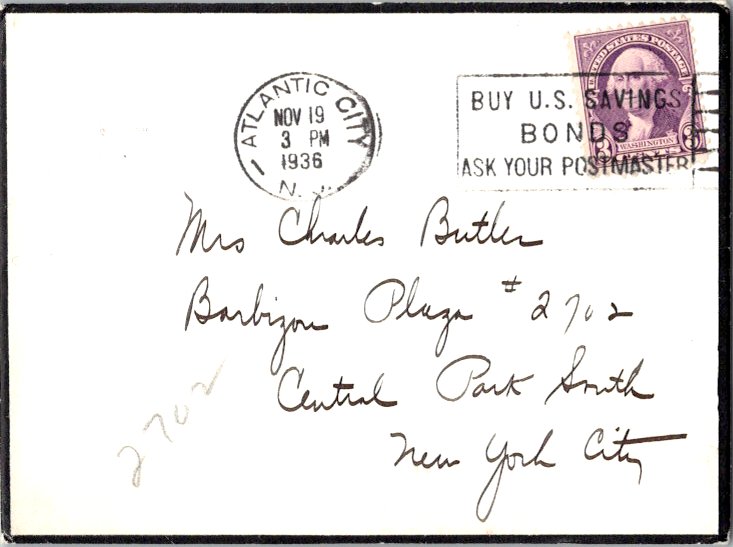 ATLANTIC CITY
NOV 19
3 PM
1936
N. J.
UNITED STATES POSTAGE
BUY U.S. SAVINGS
BONDS
ASK YOUR POSTMASTER
3 WASHINGTON 3
Mrs Charles Butler
Barbizon Plaza # 2702
Central Park South
New York City
2702